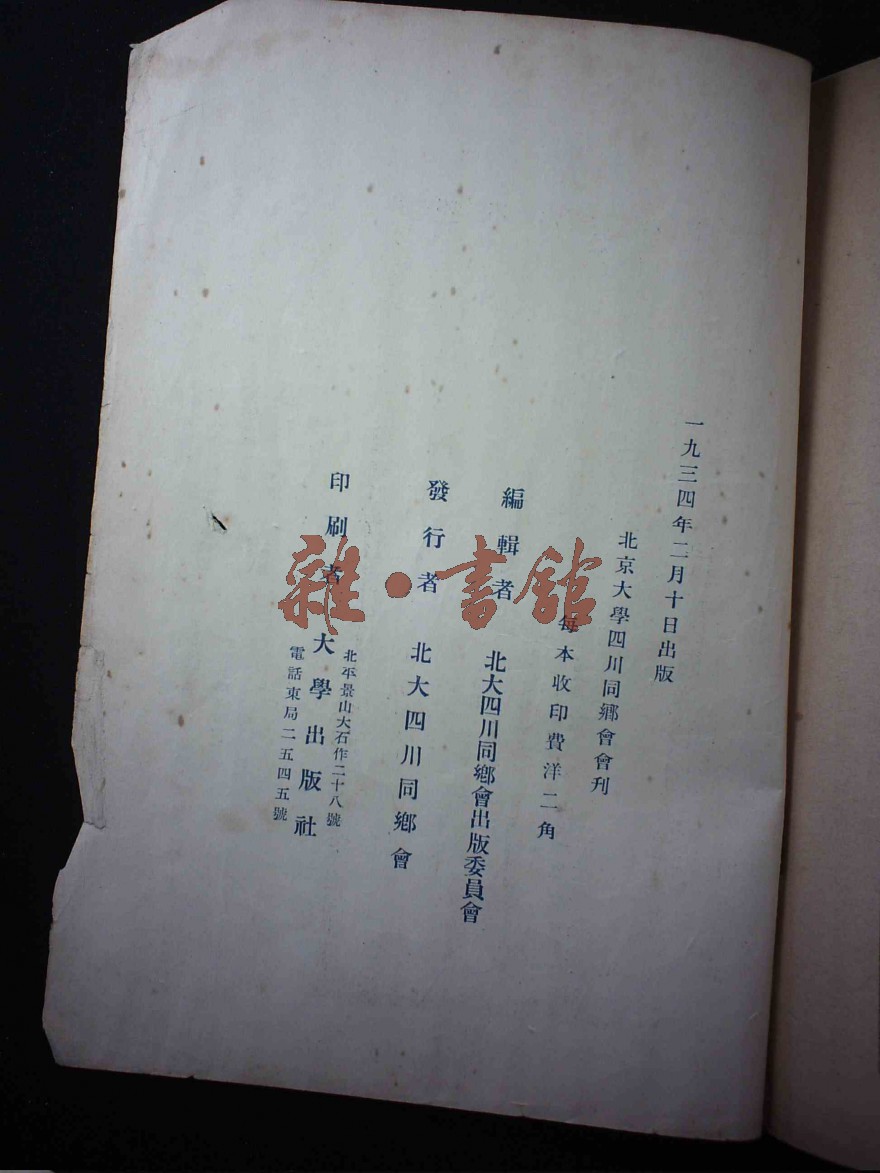 一九三四年二月十日出版
北京大學四川同鄉會會刊
每本收印費洋二角
編輯者 北大四川同鄉會出版委員會
發行者 北大四川同鄉會
印刷者 大學出版社
北平景山大石作二十八號
電話東局二五四五號
雜·書館